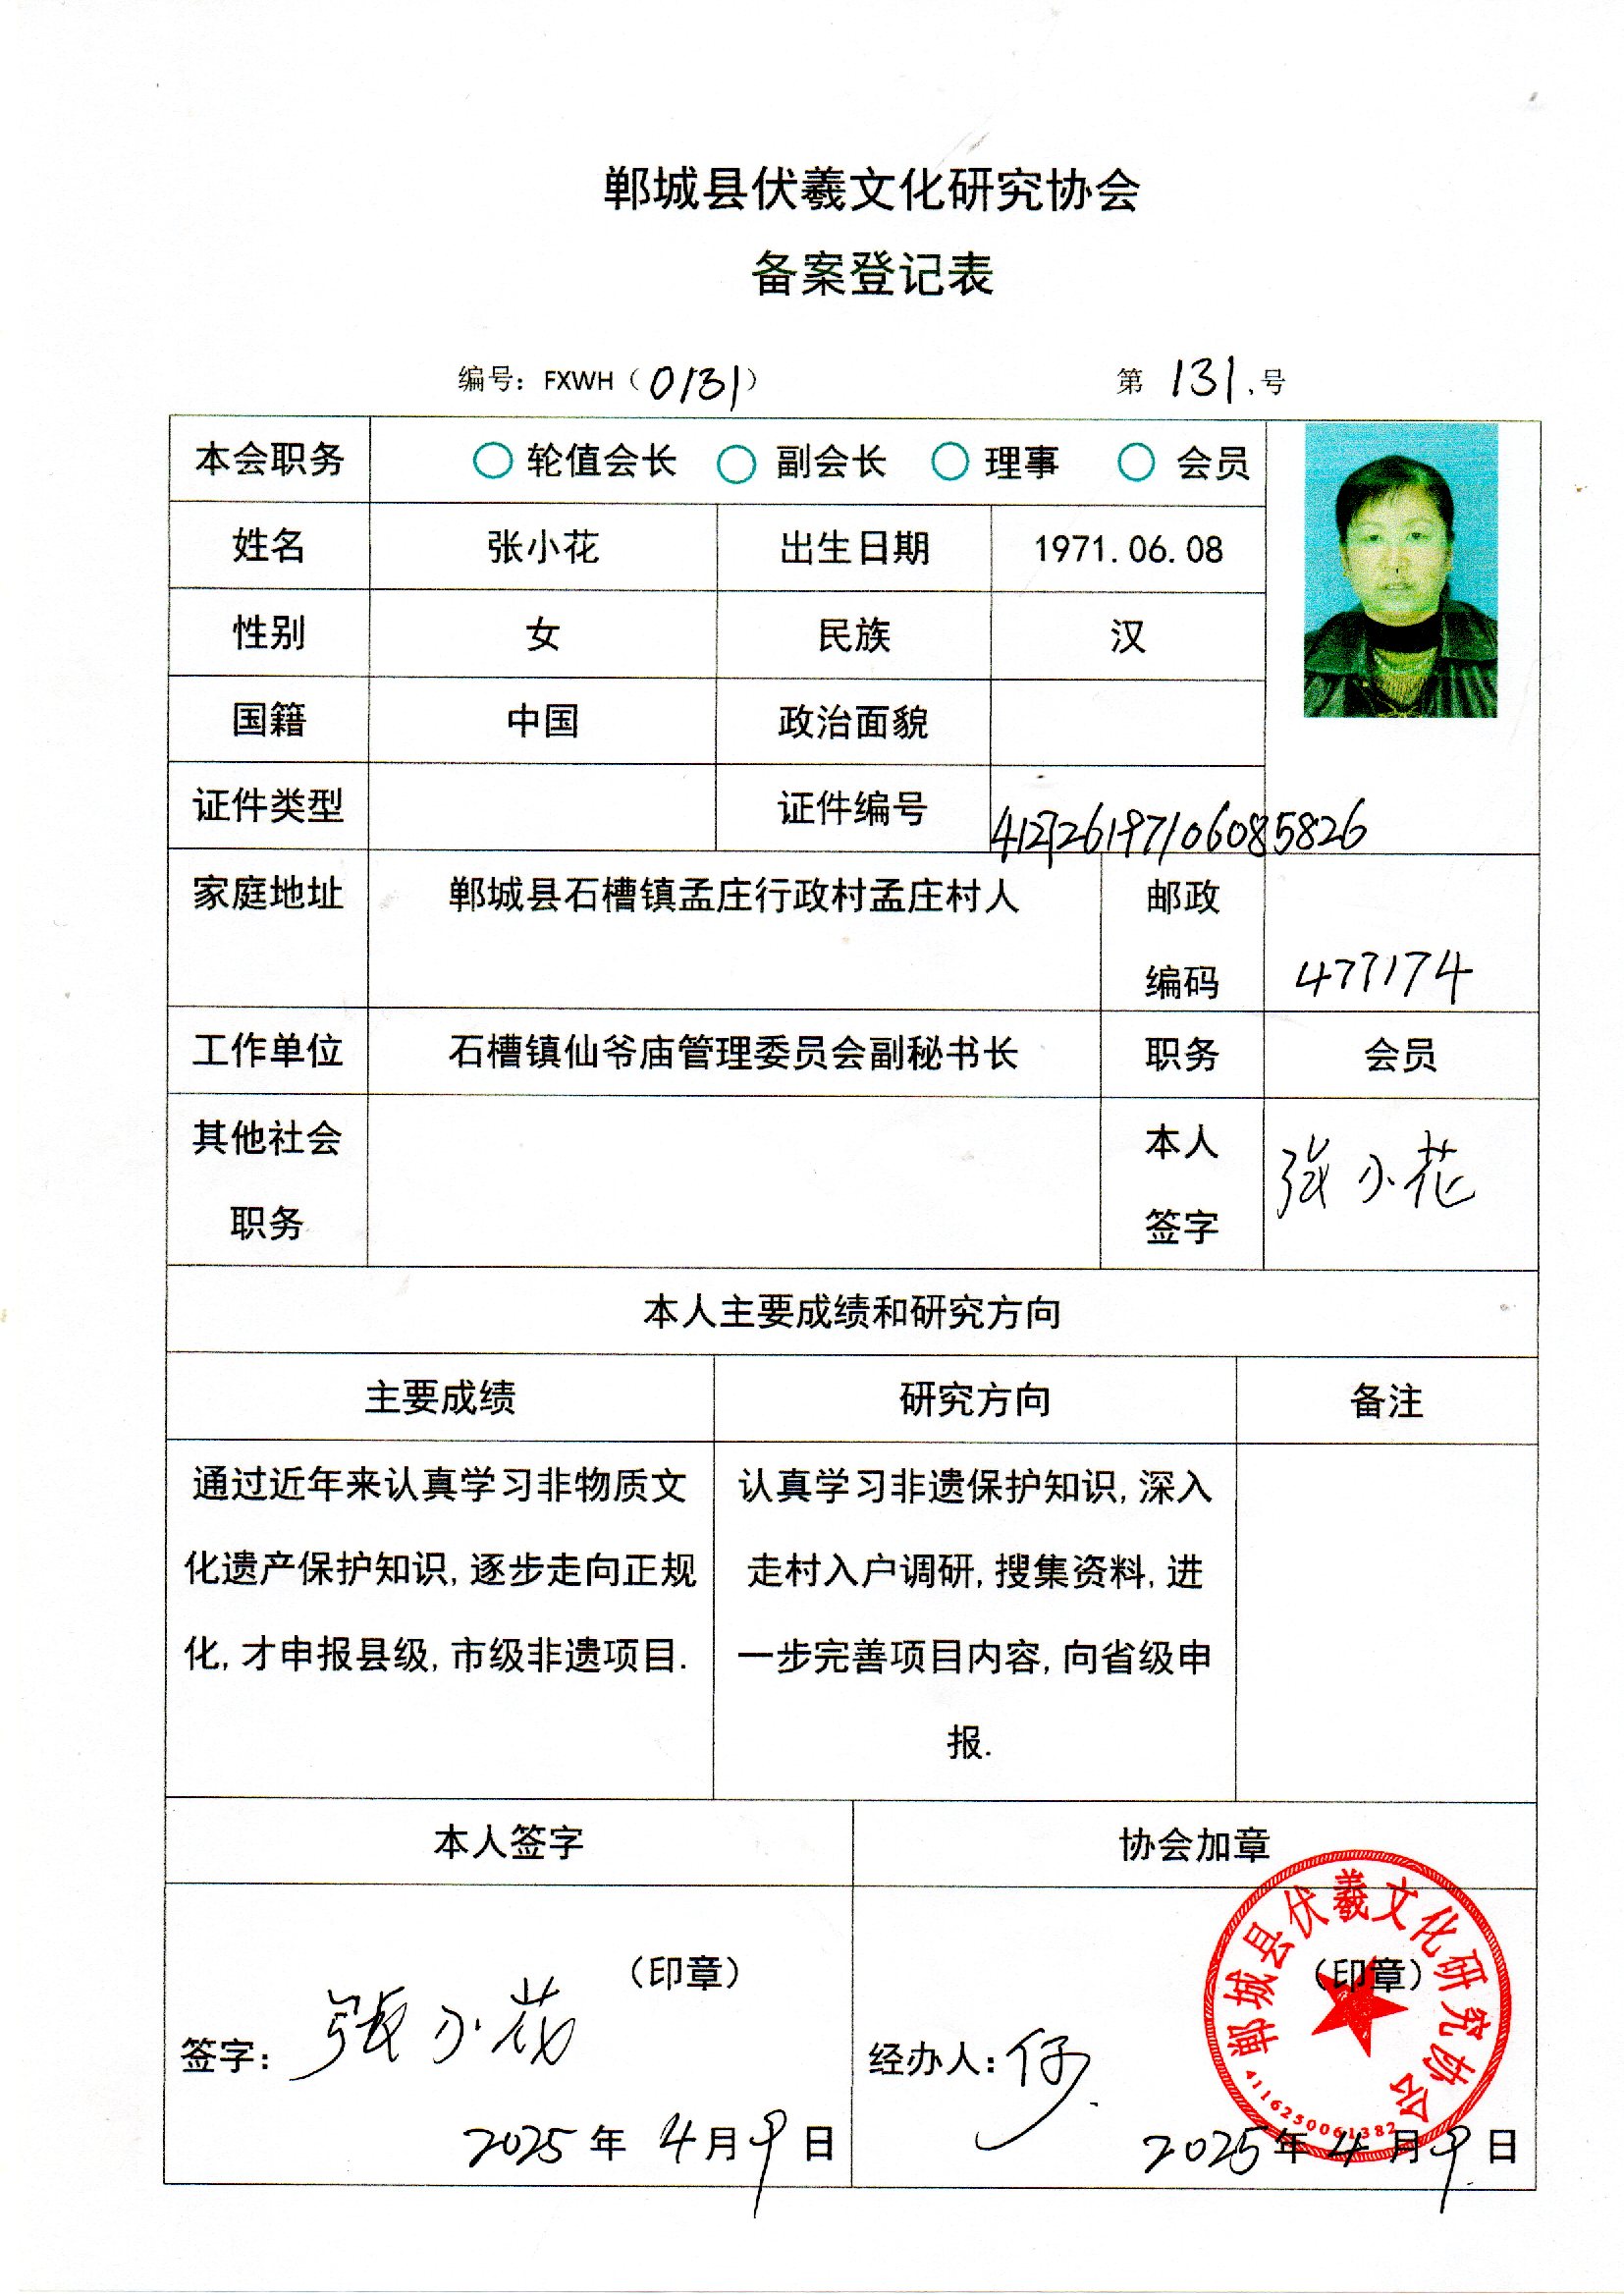 郸城县伏羲文化研究协会
备案登记表
编号：FXWH（0131） 第 131.号
本会职务 ○ 轮值会长 ○ 副会长 ○ 理事 ○ 会员
姓名 张小花 出生日期 1971.06.08
性别 女 民族 汉
国籍 中国 政治面貌
证件类型 证件编号 412726197106085826
家庭地址 郸城县石槽镇孟庄行政村孟庄村人 邮政
编码 477174
工作单位 石槽镇仙爷庙管理委员会副秘书长 职务 会员
其他社会 本人
职务 签字 张小花
本人主要成绩和研究方向
主要成绩 研究方向 备注
通过近年来认真学习非物质文
化遗产保护知识,逐步走向正规
化,才申报县级,市级非遗项目.
认真学习非遗保护知识,深入
走村入户调研,搜集资料,进
一步完善项目内容,向省级申
报.
本人签字 协会加章
（印章）
签字：張小花
2025年 4月9日
（印章）
经办人：
2025年4月9日
郸城县伏羲文化研究协会
4116250061382